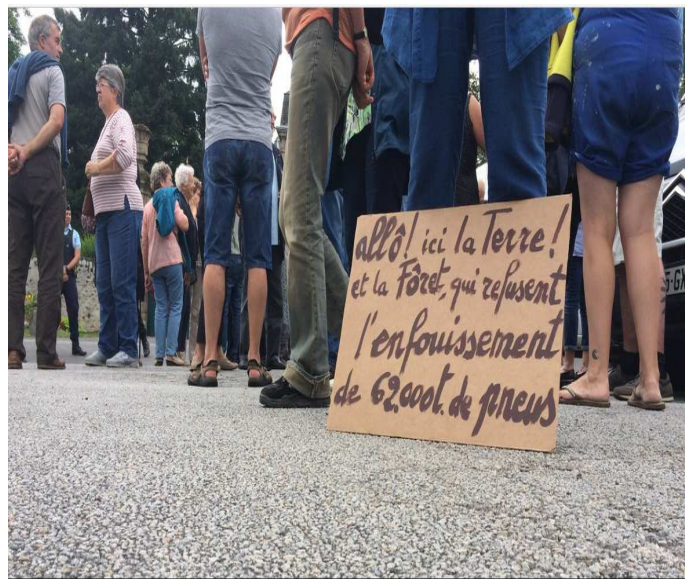 allô! ici la Terre!
et la Fôret, qui refusent
l'enfouissement
de 62.000t. de pneus